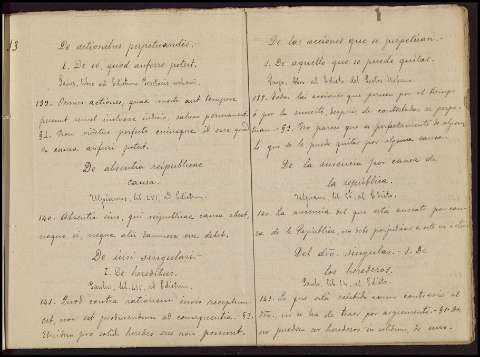 13
De actionibus perpetuandis.-
1. De eo, quod auferre potest.
Gaius, libro ad Edictum Praetoris urbani.
139. Omnes actiones, quae morte aut tempore
pereunt semel inclusae iudicio, salvae permanent.
§1. Non videtur perfecte cuiusque id esse quod
ex causa auferri potest.
De absentia reipublicae
causa.
Ulpianus, lib. ad Edictum.
140. Absentia eius, qui reipublicae causa abest,
neque ei, neque alii damnosa esse debet.
De iuri singulari.-
1. De heredibus.
Paulus, lib. ad Edictum.
141. Quod contra rationem iuris receptum
est non est producendum ad consequentia. §1.
Unius pro solido heredes esse non possunt.
1
De las acciones que se perpetuan.-
1. De aquello que se puede quitar.
Gayo, libro al Edicto del Pretor Urbano.
139. Todas las acciones que perecen por el tiempo
ó por la muerte, despues de contestadas se perpe-
tuan.- §1. No parece que es perfectamente de alguno
lo que se le puede quitar por alguna causa.
De la ausencia por causa de
la república.
Ulpiano, lib. al Edicto.
140. La ausencia del que está ausente por cau-
sa de la República, no debe perjudicar á este ni á otro.
Del dro. singular.- 1. De
los herederos.
Paulo, lib. al Edicto.
141. Lo que está recibido como contrario al
dro., no se ha de traer por argumento.-
no pueden ser herederos in solidum, de uno.